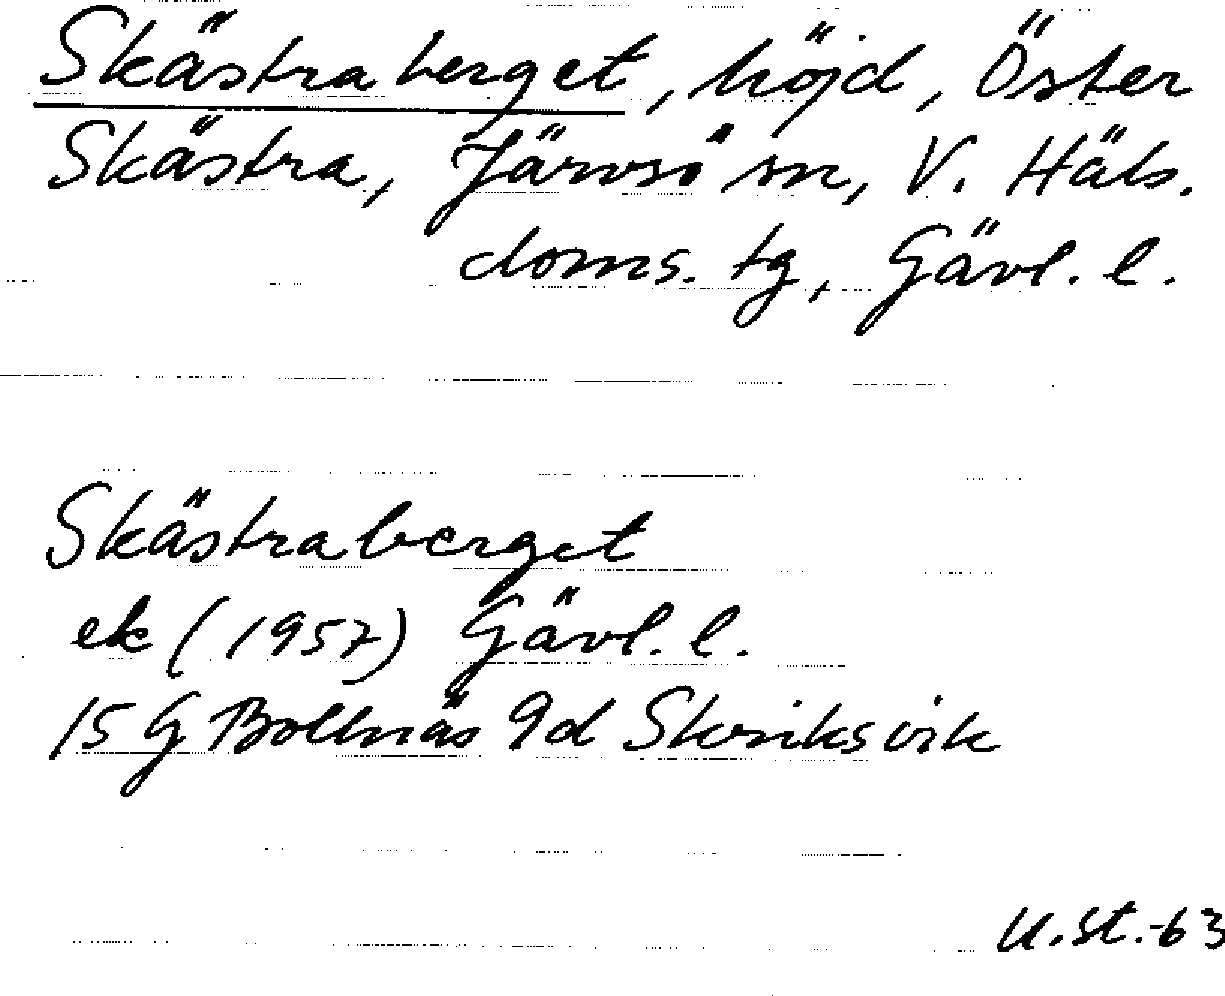 Skästraberget, höjd, Öster
Skästra, Järvsö sn, V. Häls.
doms. tg, Gävl. l.
Skästraberget
ek (1957) Gävl. l.
15 G Bollnäs 9d Skriksvik
U.St.-63